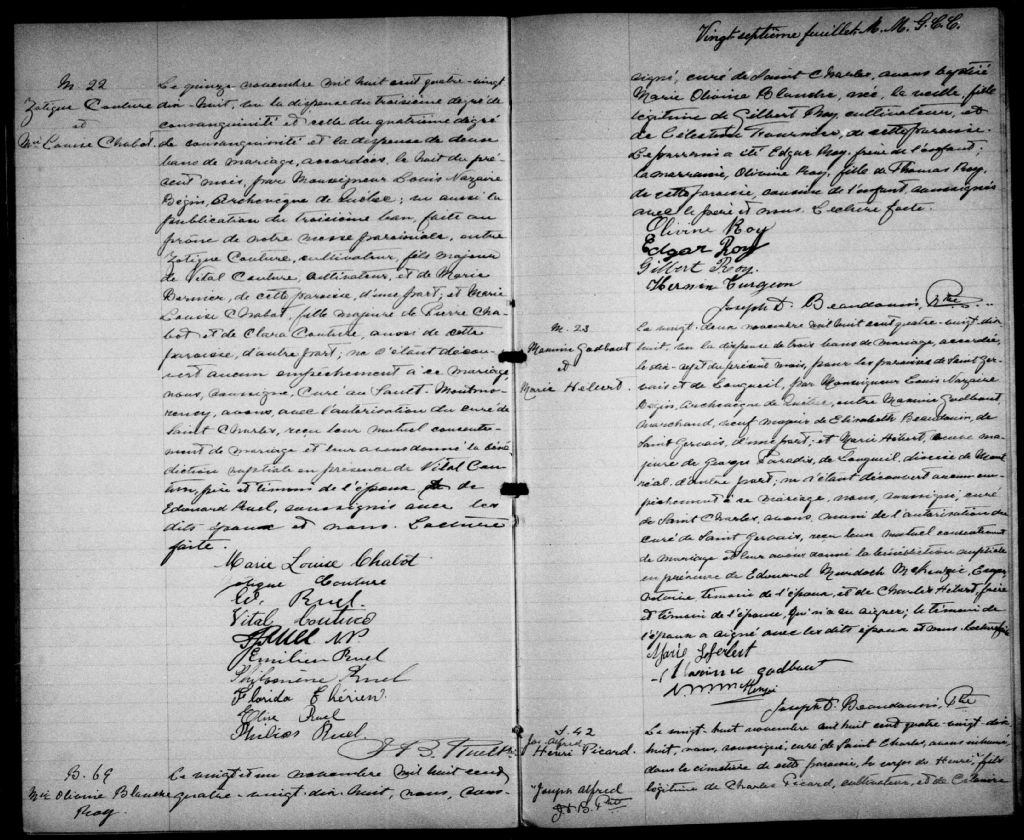 M. 22
Zotique Couture
et
Mie Louise Chabot.
Le quinze novembre mil huit cent quatre-vingt
dix-huit, vu la dispense du troisième degré de
consanguinité et celle du quatrième degré
de consanguinité et la dispense de deux
bans de mariage, accordées, le huit du pré-
sent mois, par Monseigneur Louis Nazaire
Bégin, Archevêque de Québec; vu aussi la
publication du troisième ban, faite au
prône de notre messe paroissiale, entre
Zotique Couture, cultivateur, fils majeur
de Vital Couture, cultivateur, et de Marie
Bernier, de cette paroisse, d'une part; et Marie
Louise Chabot, fille majeure de Pierre Cha-
bot et de Clara Couture, aussi de cette
paroisse, d'autre part; ne s'étant décou-
vert aucun empêchement à ce mariage,
nous, soussigné, Curé du Sault-Montmo-
rency, avons, avec l'autorisation du curé de
Saint Charles, reçu leur mutuel consente-
ment de mariage et leur avons donné la béné-
diction nuptiale en présence de Vital Cou-
ture, père et témoin de l'époux de
Edouard Ruel, soussignés avec les
dits époux et nous. Lecture
faite.
Marie Louise Chabot
Zotique Couture
E. Ruel.
Vital Couture
Ruel NP
Emilien Ruel
Philomène Ruel
Florida Thérien.
Elise Ruel
Philias Ruel.
J. B. Ruel Ptre
B. 69
Mie Olivine Blanche
Roy.
Le vingt et un novembre mil huit cent
quatre-vingt-dix-huit, nous, sous-
Vingt septième feuillet. M. M. G. C. C.
signé, curé de Saint Charles, avons baptisé
Marie Olivine Blanche, née, la veille, fille
légitime de Gilbert Roy, cultivateur, et
de Célestine Fournier, de cette paroisse.
Le parrain a été Edgar Roy, frère de l'enfant;
la marraine, Olivine Roy, fille de Thomas Roy,
de cette paroisse, cousine de l'enfant, soussignés
avec le père et nous. Lecture faite.
Olivine Roy
Edgar Roy
Gilbert Roy.
Turgeon
Joseph D. Beaudouin, Ptre
M. 23
Maxime Godbout
et
Marie Hébert.
Le vingt-deux novembre mil huit cent quatre-vingt-dix-
huit, vu la dispense de trois bans de mariage, accordée,
le dix-sept du présent mois, pour les paroisses de Saint Ger-
vais et de Longueil, par Monseigneur Louis Nazaire
Bégin, Archevêque de Québec, entre Maxime Godbout,
marchand, veuf majeur de Elisabeth Beaudouin, de
Saint Gervais, d'une part; et Marie Hébert, veuve ma-
jeure de Georges Paradis, de Longueil, diocèse de Mont
réal, d'autre part; ne s'étant découvert aucun em-
pêchement à ce mariage, nous, soussigné, curé
de Saint Charles, avons, muni de l'autorisation du
curé de Saint Gervais, reçu leur mutuel consentement
de mariage et leur avons donné la bénédiction nuptiale
en présence de Edouard Murdoch McKenzie,
notaire, témoin de l'époux, et de Charles Hébert, frère
et témoin de l'épouse, qui n'a su signer; le témoin de
l'époux a signé avec les dits époux et nous. Lecture faite
Marie Hébert
Maxime godbout
Joseph D. Beaudouin, Ptre
S. 42
Jos. Alfred
Henri Picard.
"Joseph Alfred
J. D. B. Ptre
Le vingt-huit novembre mil huit cent quatre-vingt-dix-
huit, nous, soussigné, curé de Saint Charles, avons inhumé,
dans le cimetière de cette paroisse, le corps de Henri, fils
légitime de Charles Picard, cultivateur, et de